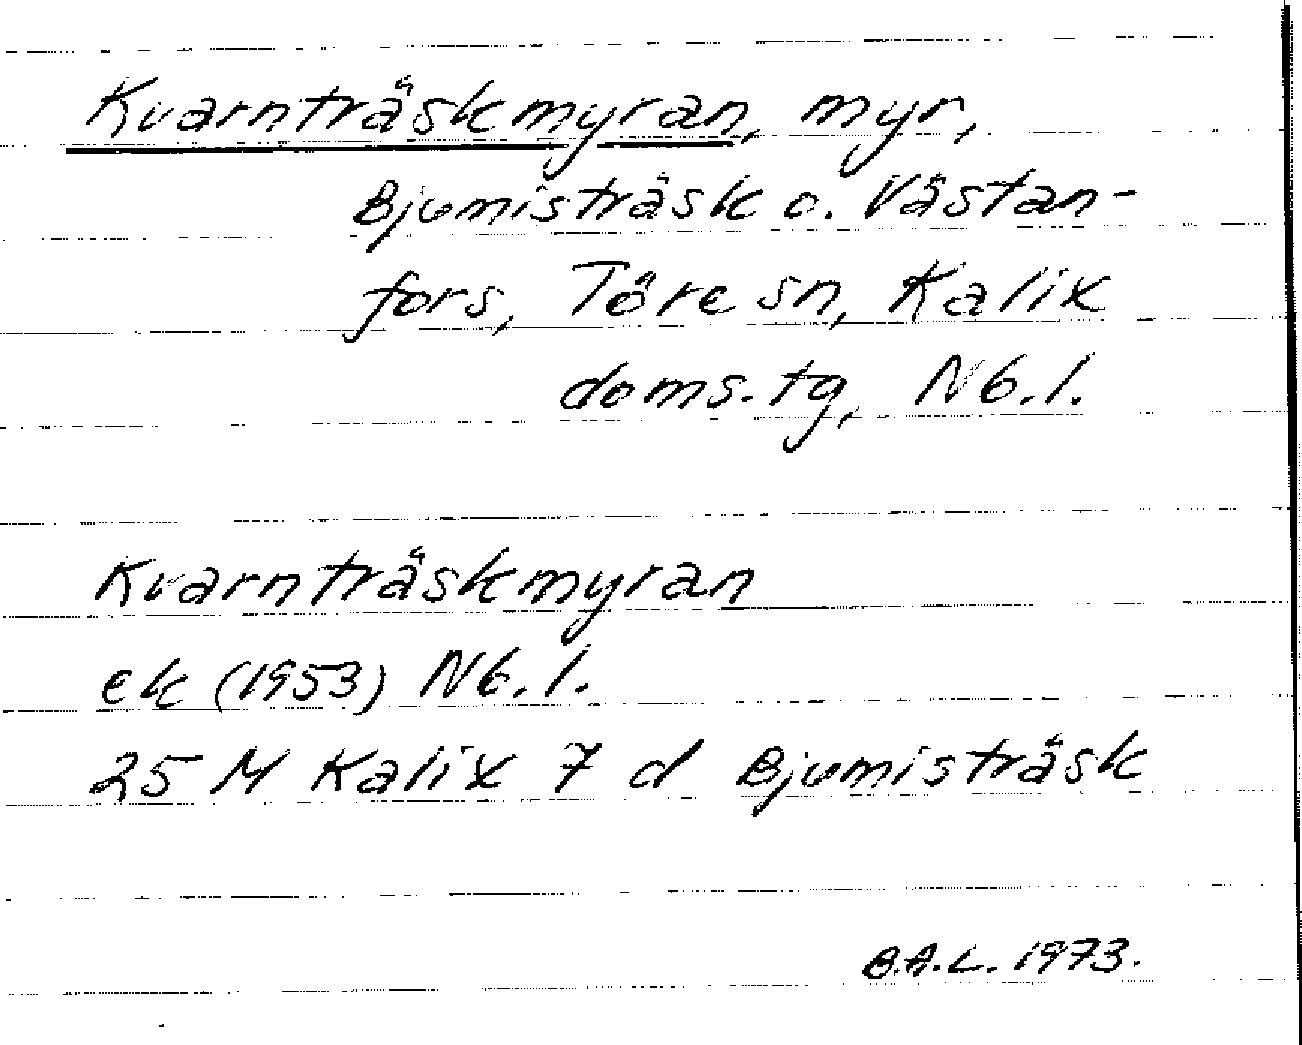 Kvarnträskmyran, myr,
Bjumisträsk o. Västan-
fors, Töre sn, Kalix
doms. tg, Nb. l.
Kvarnträskmyran
ek (1953) Nb. l.
25 M Kalix 7 d Bjumisträsk
B.A.L. 1973.